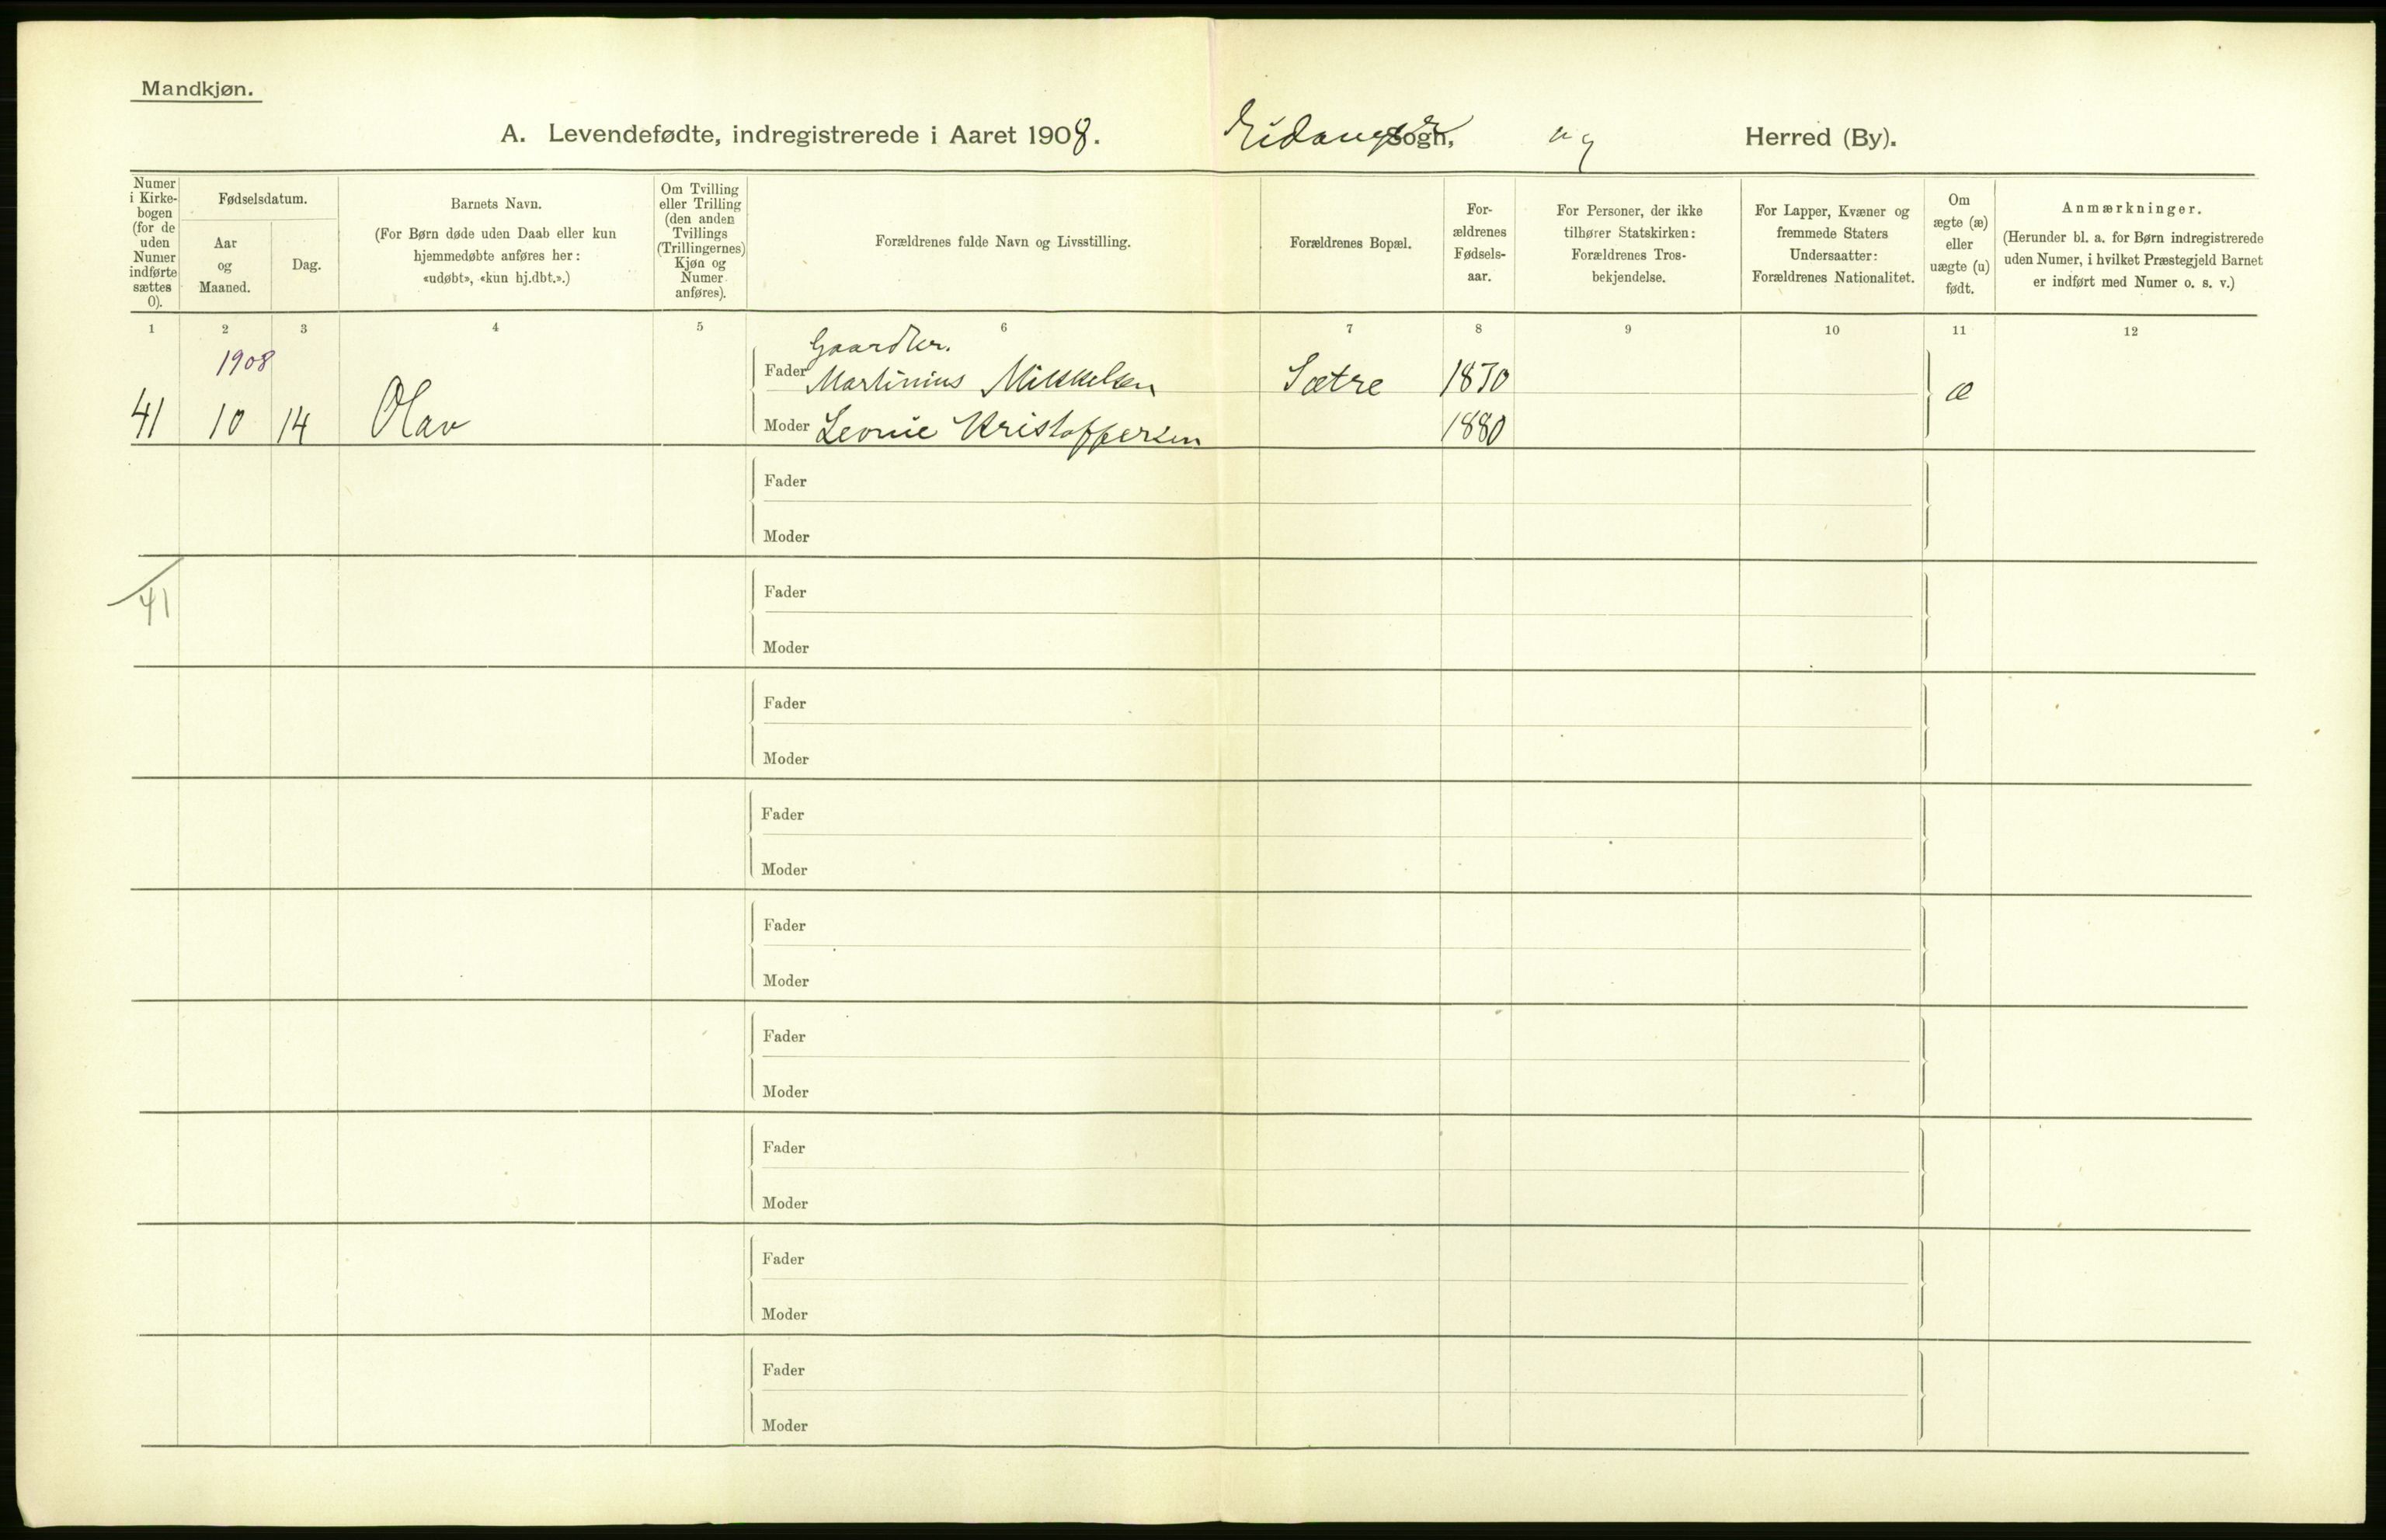 Mandkjøn.
A. Levendefødte, indregistrerede i Aaret 1908. Eidanger Sogn, Herred (By).
Numer i Kirke-bogen (for de uden Numer indførte sættes 0).
Fødselsdatum.
Aar og Maaned.
Dag.
Barnets Navn.
(For Børn døde uden Daab eller kun hjemmedøbte anføres her: «udøbt», «kun hj.dbt.».)
Om Tvilling eller Trilling (den anden Tvillings (Trillingernes) Kjøn og Numer anføres).
Forældrenes fulde Navn og Livsstilling.
Forældrenes Bopæl.
For-ældrenes Fødsels-aar.
For Personer, der ikke tilhører Statskirken: Forældrenes Tros-bekjendelse.
For Lapper, Kvæner og fremmede Staters Undersaatter: Forældrenes Nationalitet.
Om ægte (æ) eller uægte (u) født.
Anmærkninger.
(Herunder bl. a. for Børn indregistrerede uden Numer, i hvilket Præstegjeld Barnet er indført med Numer o. s. v.)
1 2 3 4 5 6 7 8 9 10 11 12
1908 Gaardbr.
Fader Martinius Mikkelsen Sætre 1870 æ
41 10 14 Olav Moder Leonie Kristoffersen 1880
Fader
Moder
41 Fader
Moder
Fader
Moder
Fader
Moder
Fader
Moder
Fader
Moder
Fader
Moder
Fader
Moder
Fader
Moder